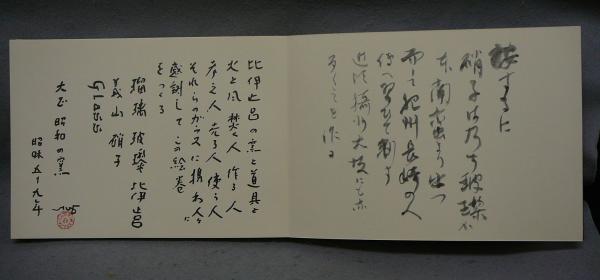 按するに
硝子は乃ち玻瓈
東南夷より出つ
而して肥州長崎の人
傳へ習ひて制す
近頃攝州大坂にも亦
多くこれを作る
比伊止呂の窯と道具と
火と風 焚く人 作る人
考える人 売る人 使う人
それらのガラスに携わる人々に
感謝して この絵巻
をつくる
瑠璃 玻瓈 比伊止呂
義山 硝子
Glass
大正 昭和の窯
昭和五十九年